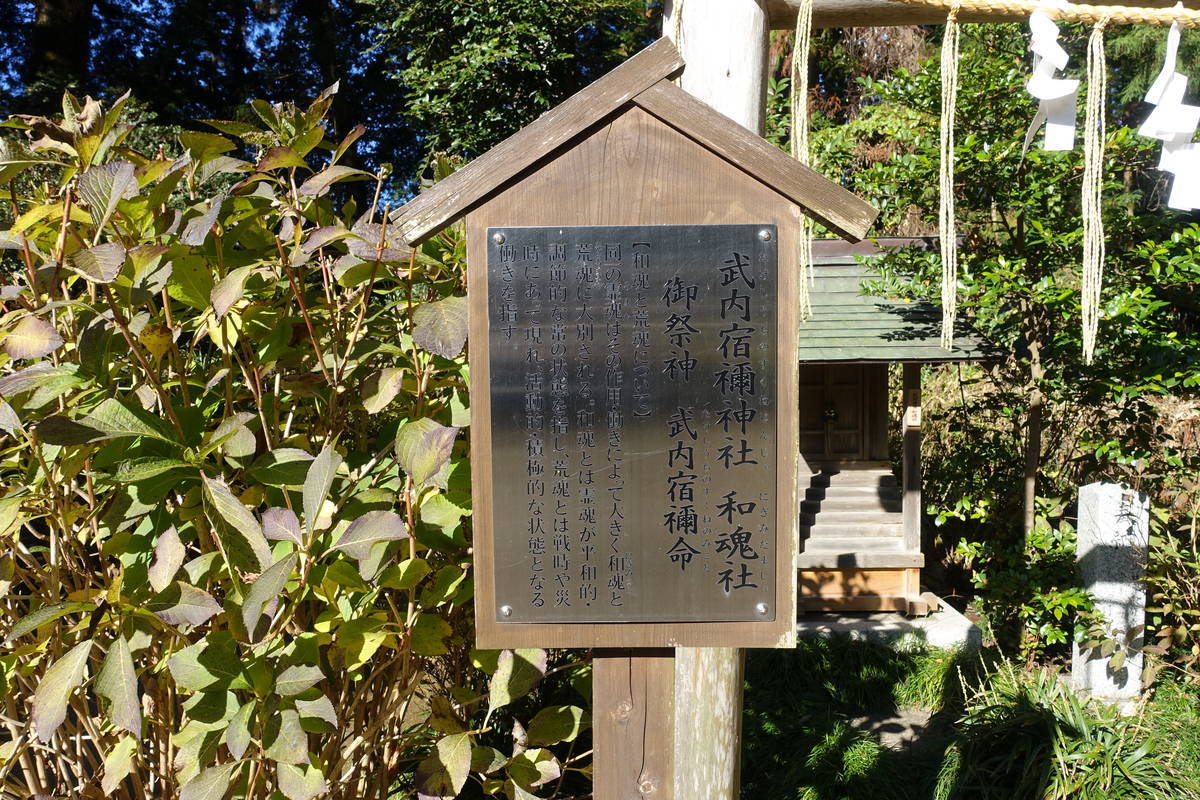 武内宿禰神社　和魂社
御祭神　武内宿禰命
【和魂と荒魂について】
同一の霊魂はその作用・働きによって大きく和魂と
荒魂に大別される。和魂とは霊魂が平和的・
調節的な常の状態を指し、荒魂とは戦時や災
時にあって現れ、活動的・積極的な状態となる
働きを指す。